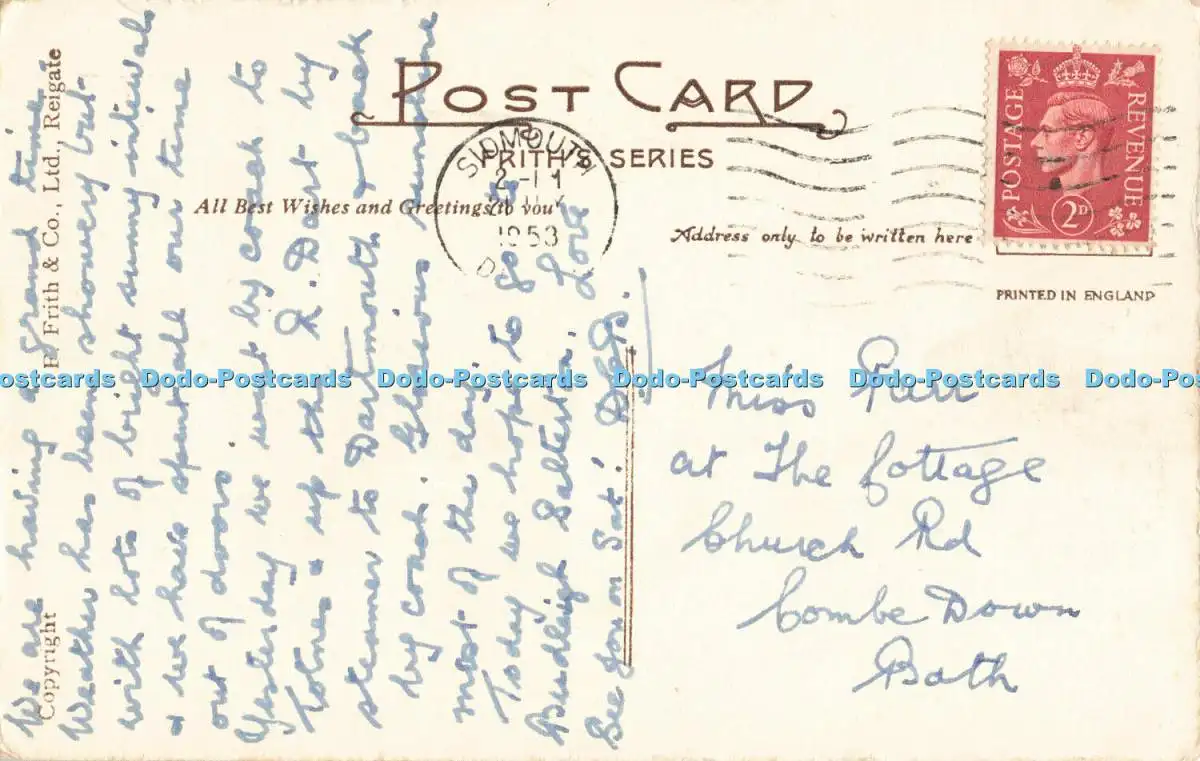 POST CARD
FRITH'S SERIES
All Best Wishes and Greetings to you
Address only to be written here
PRINTED IN ENGLAND
POSTAGE
REVENUE
2D
SIDMOUTH
1953
Copyright
F. Frith & Co., Ltd., Reigate
We are having a grand time.
Weather has been showery but
with lots of bright sunny intervals
& we have spent all our time
out of doors.
Yesterday we went by coach to
Totnes & up the R. Dart by
steamer to Dartmouth & back
by coach. Glorious sunshine
most of the day.
Today we hope to go to
Budleigh Salterton. Love
See you on Sat.
Miss Parr
at The Cottage
Church Rd
Combe Down
Bath
Dodo-Postcards Dodo-Postcards Dodo-Postcards Dodo-Postcards Dodo-Postcards Dodo-Postcards